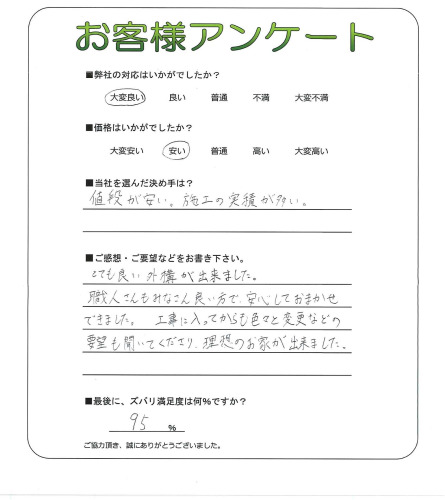 お客様アンケート
■弊社の対応はいかがでしたか？
大変良い 良い 普通 不満 大変不満
■価格はいかがでしたか？
大変安い 安い 普通 高い 大変高い
■当社を選んだ決め手は？
値段が安い。施工の実積が多い。
■ご感想・ご要望などをお書き下さい。
とても良い外構が出来ました。
職人さんもみなさん良い方で、安心しておまかせ
できました。 工事に入ってからも色々と変更などの
要望も聞いてくださり、理想のお家が出来ました。
■最後に、ズバリ満足度は何%ですか？
95 %
ご協力頂き、誠にありがとうございました。